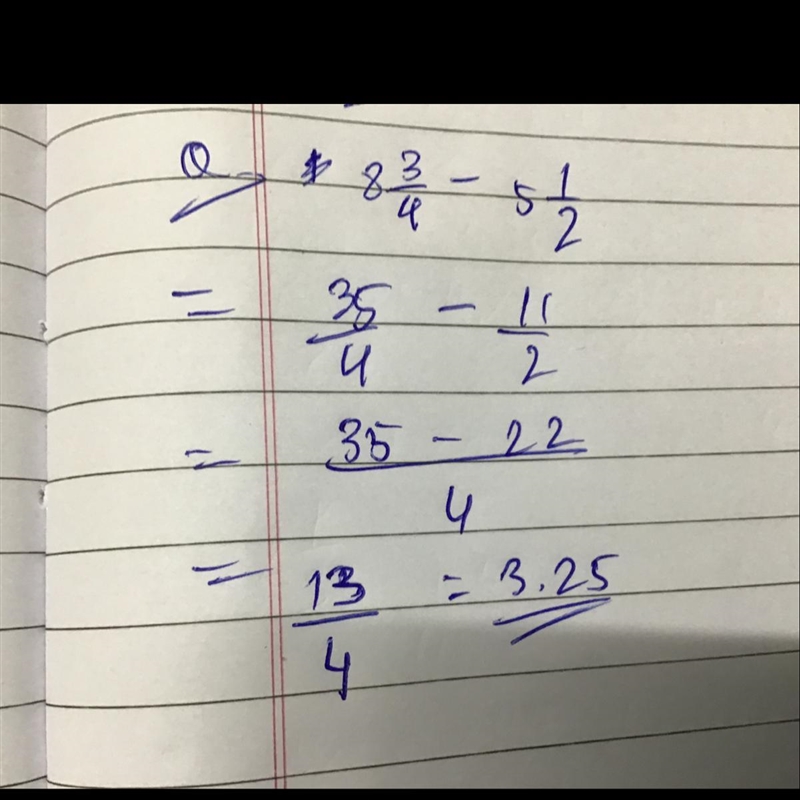 Q → 8 3/4 - 5 1/2
= 35/4 - 11/2
= 35 - 22 / 4
= 13/4 = 3.25